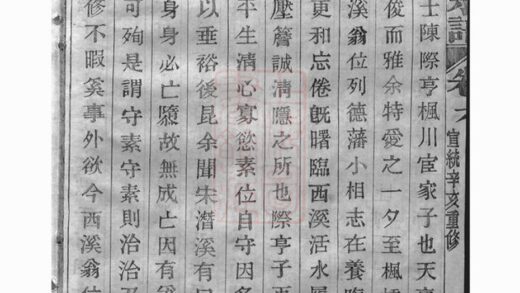 譜 卷 宣統辛亥重修
士陳際亨楓川宦家子也天
俊而雅余特愛之一夕至楓
溪翁位列德藩小相志在養
更忘倦旣曙臨西溪活水
壓簷誠清隱之所也際亨子
平生清心寡慾素位自守因
以垂裕後昆余聞宋潛溪有
身身必亡隳故無成亡因有
可殉是謂守素守素則治治
修不暇奚事外欲今西溪翁位